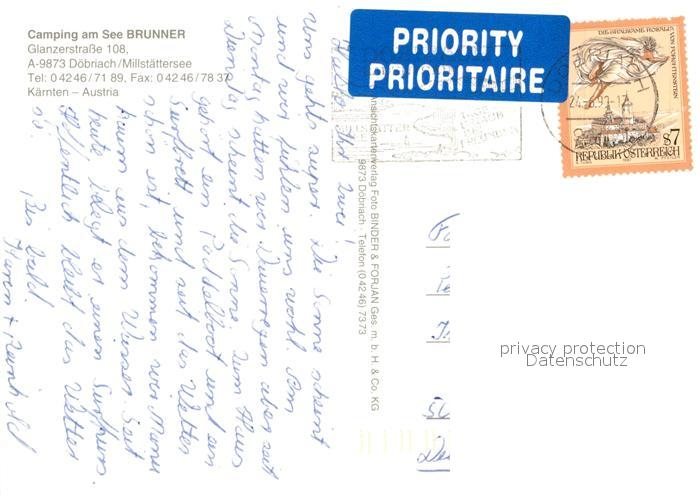 Camping am See BRUNNER
Glanzerstraße 108,
A-9873 Döbriach/Millstättersee
Tel: 0 42 46 / 71 89, Fax: 0 42 46 / 78 37
Kärnten – Austria
PRIORITY
PRIORITAIRE
DIE GRAUSAME ROSALIA VON FORCHTENSTEIN
s7
REPUBLIK ÖSTERREICH
Ansichtskartenverlag Foto BINDER & FORJAN Ges. m. b. H. & Co. KG
9873 Döbriach - Telefon (0 42 46) 7373
Hallo ihr zwei,
uns gehts super. Die Sonne scheint
und wir fühlen uns wohl. Am
Montag hatten wir Dauerregen aber seit
Dienstag scheint die Sonne. Zum Haus
gehört ein Paddelboot und ein
Surfbrett und seit das Wetter
schön ist, bekommen wir Mario
kaum aus dem Wasser. Seit
heute belegt er einen Surfkurs.
Hoffentlich bleibt das Wetter
so.
Bis bald
Karin + Reinhold
privacy protection
Datenschutz